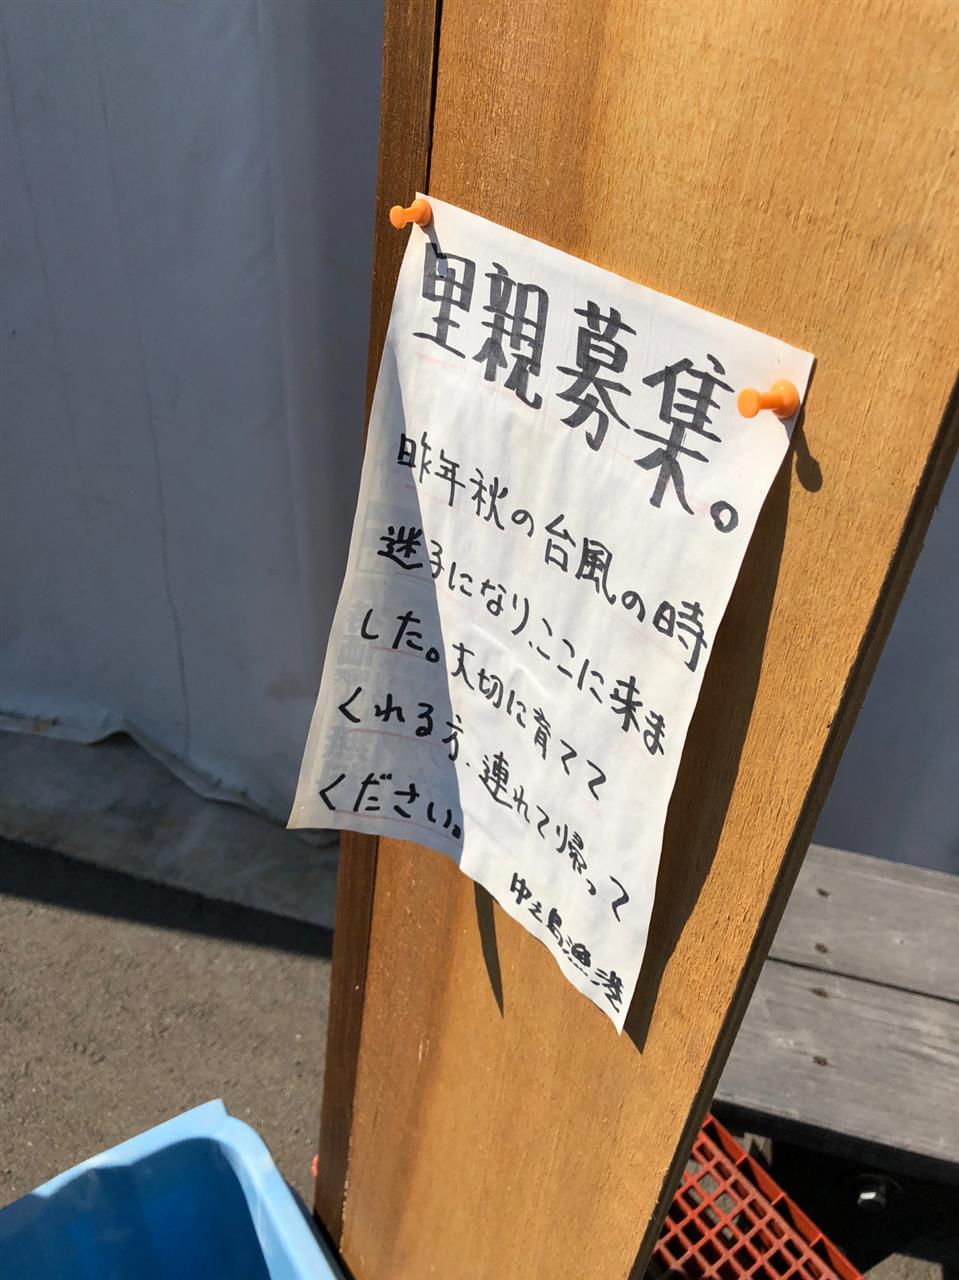 里親募集。
昨年秋の台風の時
迷子になり、ここに来ま
した。大切に育てて
くれる方、連れて帰って
ください。